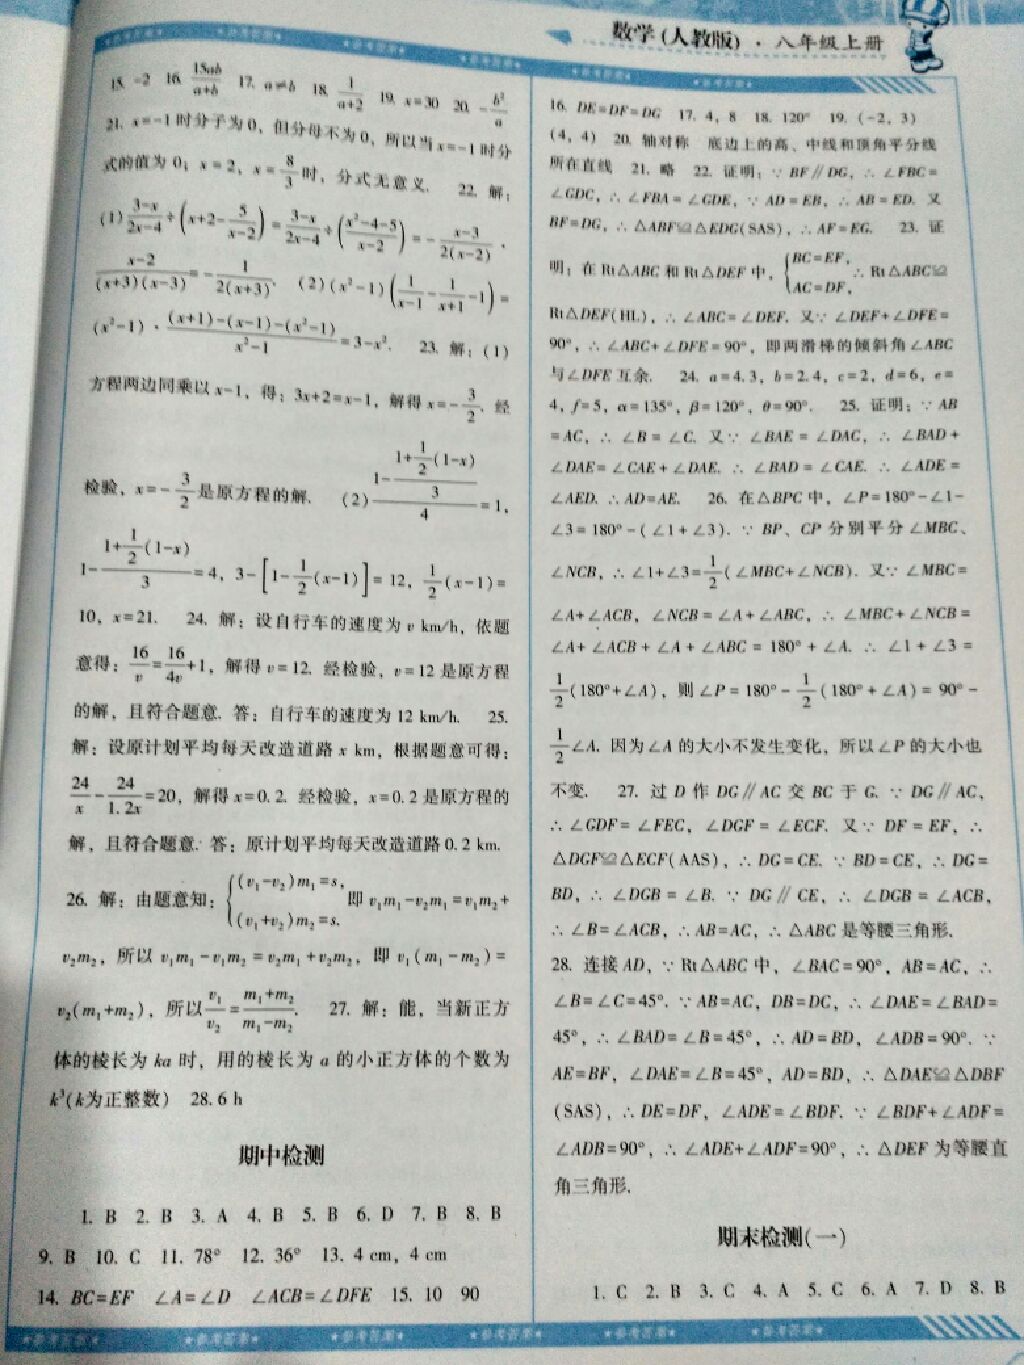 数学(人教版)·八年级上册
15. -2 16. 15ab/(a+b) 17. a≠b 18. 1/(a+2) 19. x=30 20. -b²/a
21. x=-1 时分子为0，但分母不为0，所以当x=-1时分
式的值为 0；x=2，x=8/3时，分式无意义. 22. 解：
(1) (3-x)/(2x-4)÷(x+2-5/(x-2))=(3-x)/(2x-4)÷((x²-4-5)/(x-2))=-(x-3)/(2(x-2))·
(x-2)/((x+3)(x-3))=-1/(2(x+3)). (2)(x²-1)(1/(x-1)-1/(x+1)-1)=
(x²-1)·((x+1)-(x-1)-(x²-1))/(x²-1)=3-x². 23. 解：(1)
方程两边同乘以x-1，得：3x+2=x-1，解得x=-3/2. 经
检验，x=-3/2是原方程的解. (2) (1-(1+1/2(1-x))/3)/4=1，
1-(1+1/2(1-x))/3=4，3-[1-1/2(x-1)]=12，1/2(x-1)=
10，x=21. 24. 解：设自行车的速度为v km/h，依题
意得：16/v=16/4v+1，解得v=12. 经检验，v=12是原方程
的解，且符合题意. 答：自行车的速度为12 km/h. 25.
解：设原计划平均每天改造道路x km，根据题意可得：
24/x-24/1.2x=20，解得x=0.2. 经检验，x=0.2是原方程的
解，且符合题意. 答：原计划平均每天改造道路0.2 km.
26. 解：由题意知：{(v₁-v₂)m₁=s，(v₁+v₂)m₂=s. 即v₁m₁-v₂m₁=v₁m₂+
v₂m₂，所以 v₁m₁-v₁m₂=v₂m₁+v₂m₂，即 v₁(m₁-m₂)=
v₂(m₁+m₂)，所以v₁/v₂=(m₁+m₂)/(m₁-m₂). 27. 解：能，当新正方
体的棱长为 ka 时，用的棱长为 a 的小正方体的个数为
k³(k为正整数) 28. 6 h
期中检测
1. B 2. B 3. A 4. B 5. B 6. D 7. B 8. B
9. B 10. C 11. 78° 12. 36° 13. 4 cm，4 cm
14. BC=EF ∠A=∠D ∠ACB=∠DFE 15. 10 90
16. DE=DF=DG 17. 4，8 18. 120° 19. (-2，3)
(4，4) 20. 轴对称 底边上的高、中线和顶角平分线
所在直线 21. 略 22. 证明：∵BF∥DG，∴∠FBC=
∠GDC，∴∠FBA=∠GDE，∵AD=EB，∴AB=ED. 又
BF=DG，∴△ABF≌△EDG(SAS)，∴AF=EG. 23. 证
明：在Rt△ABC和Rt△DEF中，{BC=EF，AC=DF， ∴Rt△ABC≌
Rt△DEF(HL)，∴∠ABC=∠DEF. 又∵∠DEF+∠DFE=
90°，∴∠ABC+∠DFE=90°，即两滑梯的倾斜角∠ABC
与∠DFE互余. 24. a=4.3，b=2.4，c=2，d=6，e=
4，f=5，α=135°，β=120°，θ=90°. 25. 证明：∵AB
=AC，∴∠B=∠C. 又∵∠BAE=∠DAC，∴∠BAD+
∠DAE=∠CAE+∠DAE. ∴∠BAD=∠CAE. ∴∠ADE=
∠AED. ∴AD=AE. 26. 在△BPC中，∠P=180°-∠1-
∠3=180°-(∠1+∠3). ∵BP、CP分别平分∠MBC、
∠NCB，∴∠1+∠3=1/2(∠MBC+∠NCB). 又∵∠MBC=
∠A+∠ACB，∠NCB=∠A+∠ABC，∴∠MBC+∠NCB=
∠A+∠ACB+∠A+∠ABC=180°+∠A. ∴∠1+∠3=
1/2(180°+∠A)，则∠P=180°-1/2(180°+∠A)=90°-
1/2∠A. 因为∠A的大小不发生变化，所以∠P的大小也
不变. 27. 过D作DG∥AC交BC于G. ∵DG∥AC，
∴∠GDF=∠FEC，∠DGF=∠ECF. 又∵DF=EF，∴
△DGF≌△ECF(AAS)，∴DG=CE. ∵BD=CE，∴DG=
BD，∴∠DGB=∠B. ∵DG∥CE，∴∠DGB=∠ACB，
∴∠B=∠ACB，∴AB=AC，∴△ABC是等腰三角形.
28. 连接AD，∵Rt△ABC中，∠BAC=90°，AB=AC，∴
∠B=∠C=45°. ∵AB=AC，DB=DC，∴∠DAE=∠BAD=
45°，∴∠BAD=∠B=45°，∴AD=BD，∠ADB=90°. ∵
AE=BF，∠DAE=∠B=45°，AD=BD，∴△DAE≌△DBF
(SAS)，∴DE=DF，∠ADE=∠BDF. ∵∠BDF+∠ADF=
∠ADB=90°，∴∠ADE+∠ADF=90°，∴△DEF为等腰直
角三角形.
期末检测(一)
1. C 2. B 3. C 4. A 5. C 6. A 7. D 8. B
★参考答案★ ★参考答案★ ★参考答案★ ★参考答案★ ★参考答案★ ★参考答案★